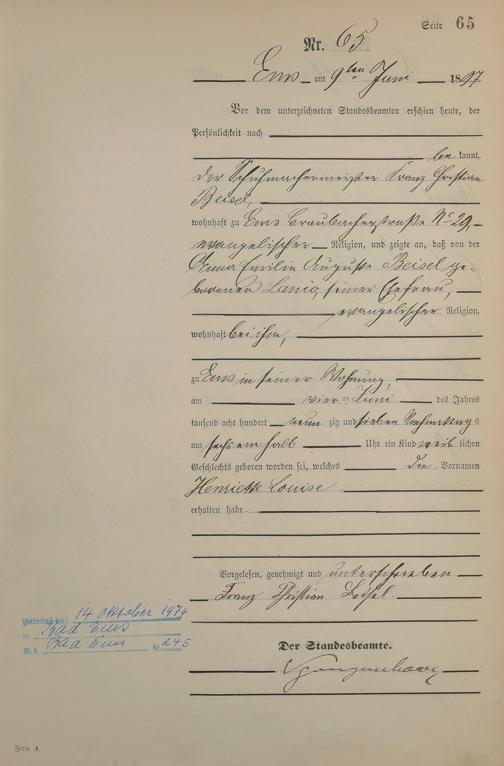 Seite 65
Nr. 65
Ems am 9ten Juni 1897
Vor dem unterzeichneten Standesbeamten erschien heute, der
Persönlichkeit nach
be kannt,
der Schuhmachermeister Franz Christian
Beisel,
wohnhaft zu Ems Braubacherstraße No 29,
evangelischer Religion, und zeigte an, daß von der
Anna Emilie Auguste Beisel ge-
borenen Lanio, seiner Ehefrau,
evangelischer Religion,
wohnhaft bei ihm,
zu Ems in seiner Wohnung,
am vier ten Juni des Jahres
tausend acht hundert neun zig und sieben Nachmittags
um sechs ein halb Uhr ein Kind weib lichen
Geschlechts geboren worden sei, welches die Vornamen
Henriette Louise
erhalten habe.
Vorgelesen, genehmigt und unterschrieben
Franz Christian Beisel.
14 Oktober 1974
in Bad Ems
St. A. Bad Ems Nr. 245
Der Standesbeamte.
Form. A.